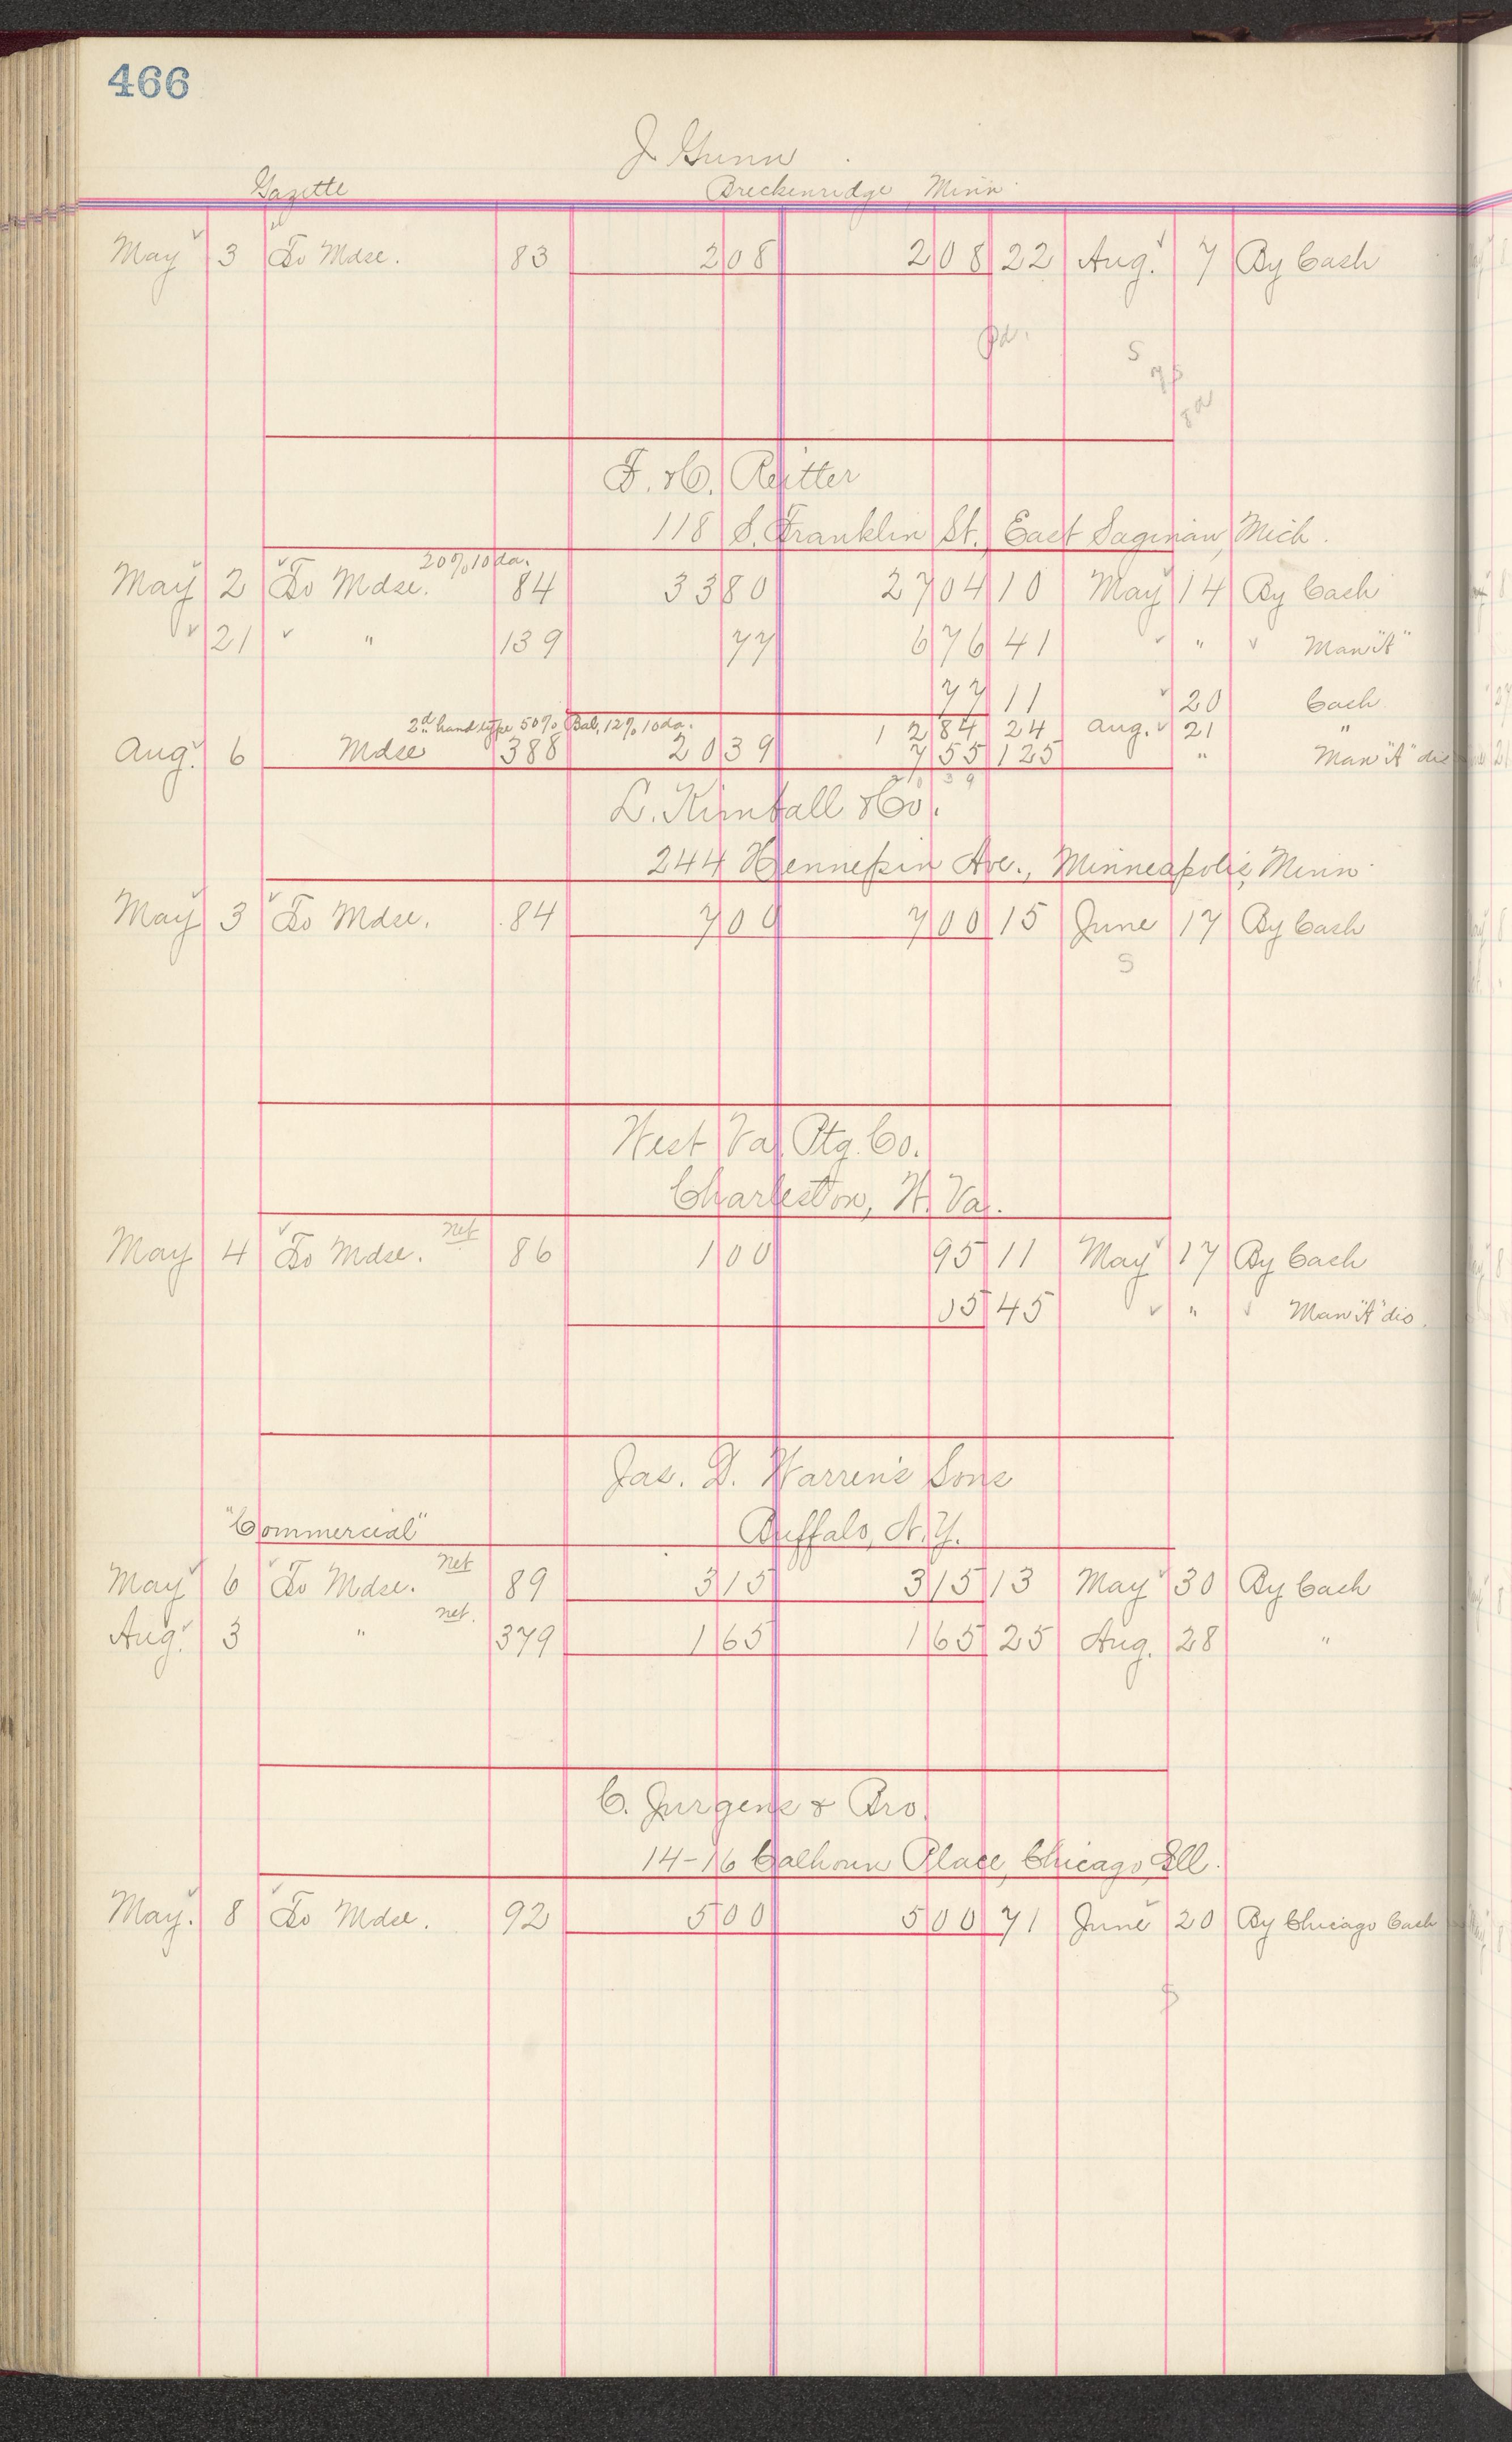 466
J Gunn
Gazette Breckenridge, Minn
May 3 To Mdse. 83 208 208 22 Aug. 7 By Cash
Pd.
S
F. & C. Reitter
118 S. Franklin St., East Saginaw, Mich.
20% 10 da.
May 2 To Mdse. 84 3380 2704 10 May 14 By Cash
21 " 139 77 676 41 " Man "A"
77 11 20 Cash
2d hand type 50% Bal, 12% 10 da. 1284 24 Aug. 21 "
Aug. 6 Mdse 388 2039 755 125 " Man "A" dis
2039
L. Kimball & Co.
244 Hennepin Ave., Minneapolis, Minn
May 3 To Mdse. 84 700 700 15 June 17 By Cash
S
West Va. Ptg. Co.
Charleston, W. Va.
May 4 To Mdse. net 86 100 95 11 May 17 By Cash
05 45 " Man "A" dis.
Jas. D. Warren's Sons
"Commercial" Buffalo, N.Y.
May 6 To Mdse. net 89 315 315 13 May 30 By Cash
Aug. 3 " net. 379 165 165 25 Aug. 28 "
C. Jurgens & Bro.
14-16 Calhoun Place, Chicago, Ill.
May. 8 To Mdse. 92 500 500 71 June 20 By Chicago Cash